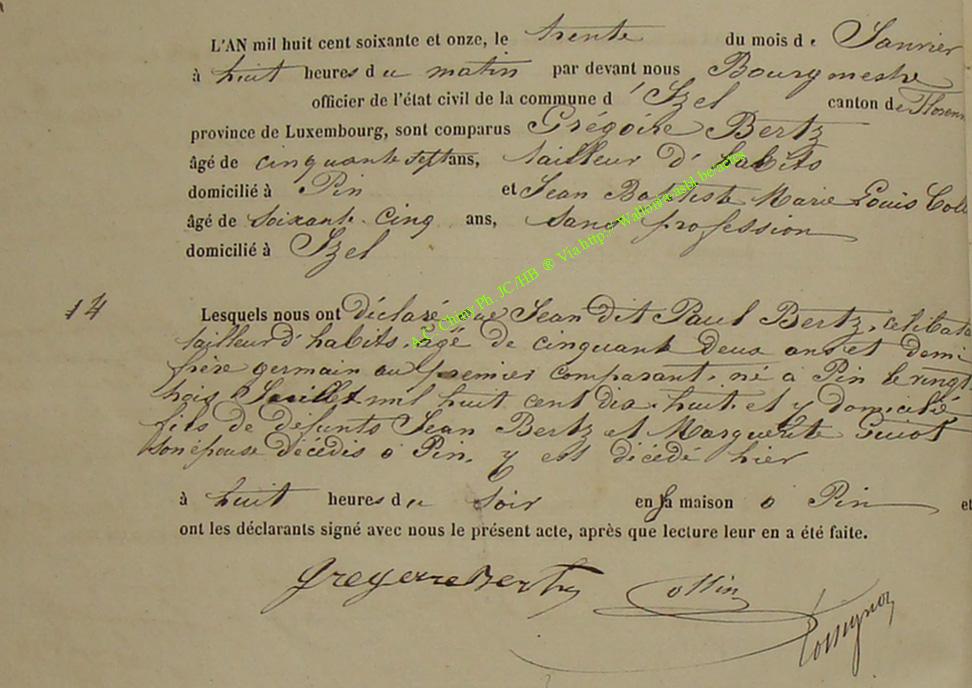 L'AN mil huit cent soixante et onze, le trente du mois de Janvier
à huit heures du matin par devant nous Bourgmestre
officier de l'état civil de la commune d'Izel canton de Floren
province de Luxembourg, sont comparus Grégoire Bertz
âgé de cinquante sept ans, tailleur d'habits
domicilié à Pin et Jean Baptiste Marie Louis Col
âgé de soixante cinq ans, sans profession
domicilié à Izel
14 Lesquels nous ont déclaré que Jean dit Paul Bertz, célibata
tailleur d'habits, âgé de cinquante deux ans et demi
frère germain au premier comparant, né à Pin le vingt
trois Juillet mil huit cent dix-huit et y domicilié
fils de défunts Jean Bertz et Marguerite Guiot
son épouse décédés à Pin, y est décédé hier
à huit heures du soir en sa maison à Pin et
ont les déclarants signé avec nous le présent acte, après que lecture leur en a été faite.
Gregoire Bertz Collin
A.C. Chiny Ph. JC/HB ® Via http://Wallonia.asbl.be/actes